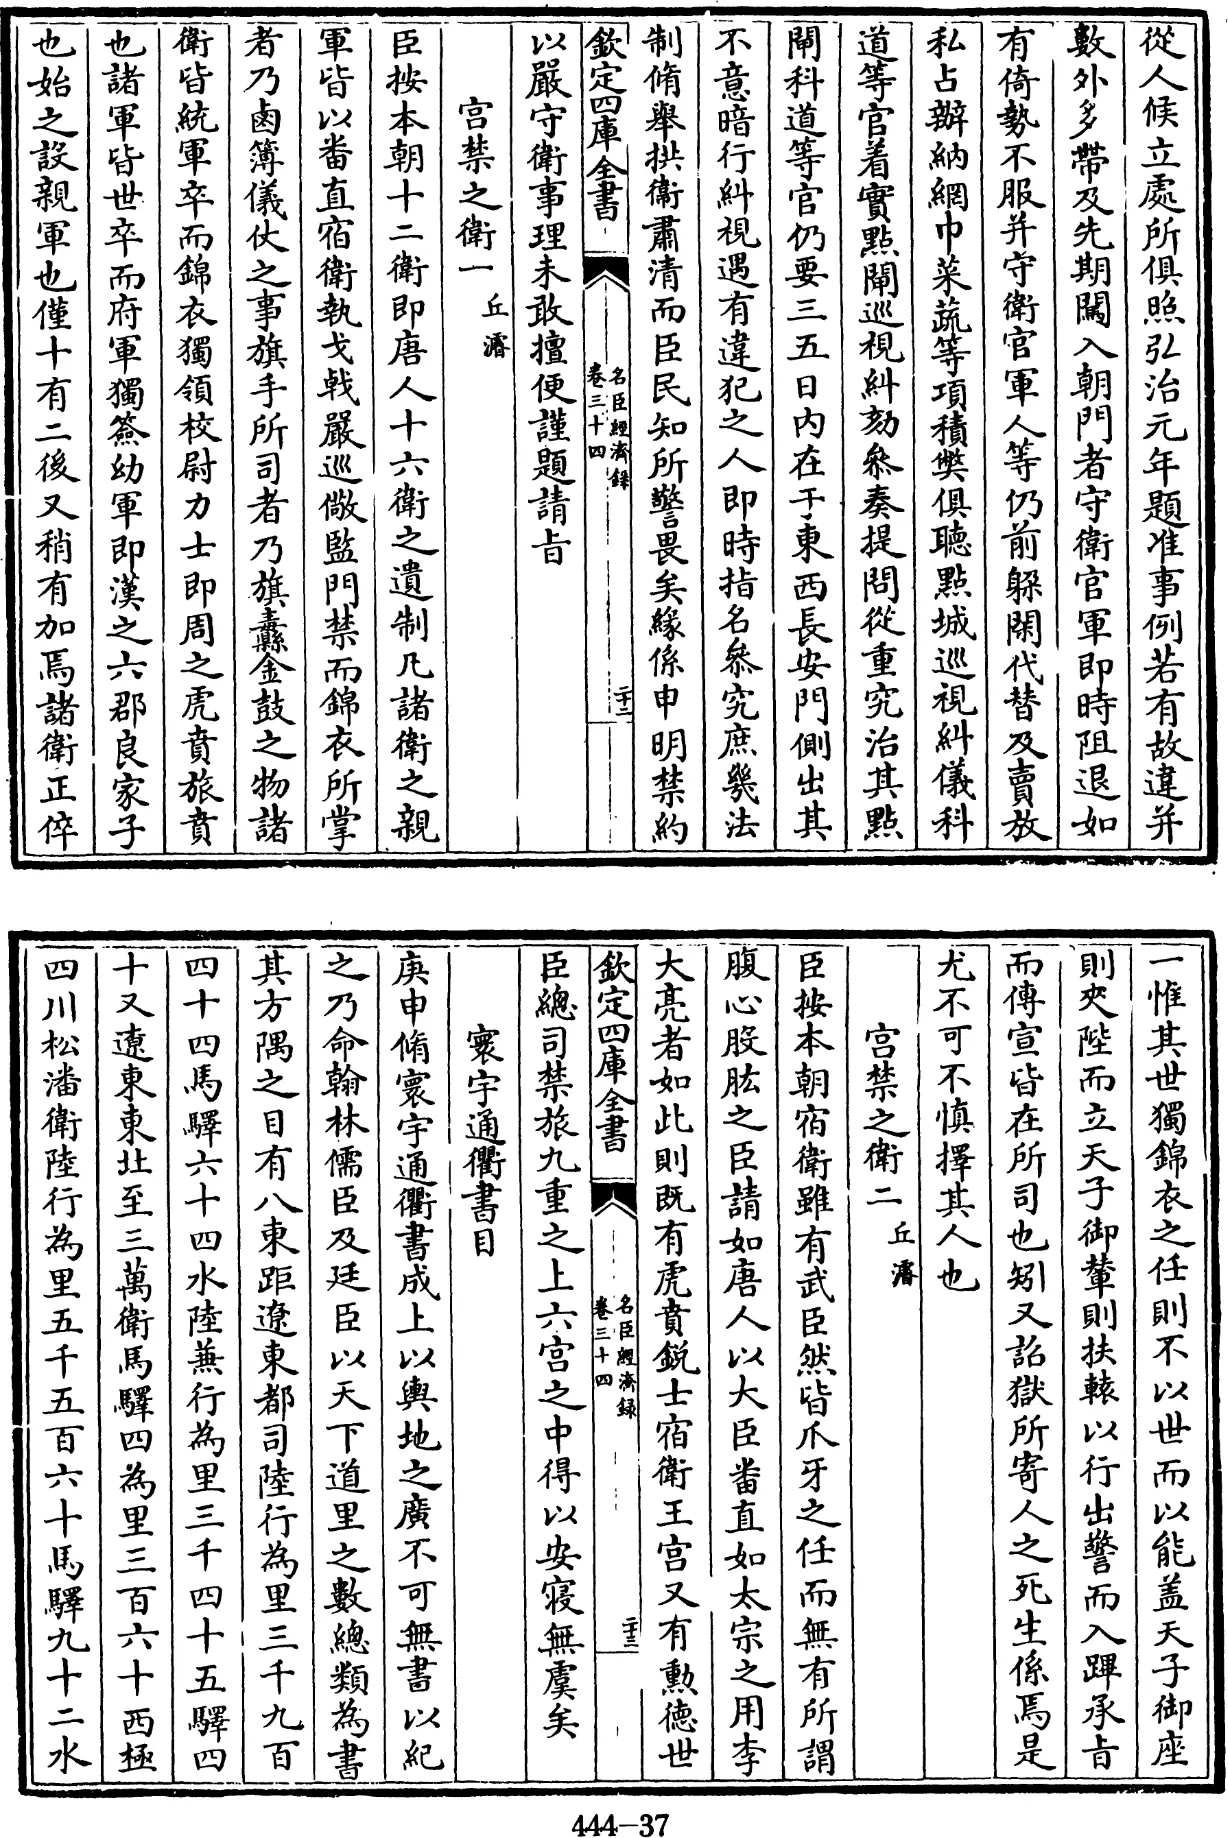 從人候立處所俱照弘治元年題准事例若有故違并
數外多帶及先期闖入朝門者守衛官軍即時阻退如
有倚勢不服并守衛官軍人等仍前躱閑代替及賣放
私占辦納網巾菜蔬等項積弊俱聽點城巡視糾儀科
道等官着實點閘巡視糾劾叅奏提問從重究治其點
閘科道等官仍要三五日内在于東西長安門側出其
不意暗行糾視遇有違犯之人即時指名叅究庶幾法
制脩舉拱衛肅清而臣民知所警畏矣緣係申明禁約
欽定四庫全書
名臣經濟錄
卷三十四
二十二
以嚴守衛事理未敢擅便謹題請旨
宫禁之衛一 丘濬
臣按本朝十二衛即唐人十六衛之遺制凡諸衛之親
軍皆以番直宿衛執戈戟嚴巡儆監門禁而錦衣所掌
者乃鹵簿儀仗之事旗手所司者乃旗纛金鼓之物諸
衛皆統軍卒而錦衣獨領校尉力士即周之虎賁旅賁
也諸軍皆世卒而府軍獨簽幼軍即漢之六郡良家子
也始之設親軍也僅十有二後又稍有加焉諸衛正倅
一惟其世獨錦衣之任則不以世而以能盖天子御座
則夾陛而立天子御輦則扶轅以行出警而入蹕承旨
而傳宣皆在所司也矧又詔獄所寄人之死生係焉是
尤不可不慎擇其人也
宫禁之衛二 丘濬
臣按本朝宿衛雖有武臣然皆爪牙之任而無有所謂
腹心股肱之臣請如唐人以大臣畨直如太宗之用李
大亮者如此則既有虎賁銳士宿衛王宫又有勲德世
欽定四庫全書
名臣經濟錄
卷三十四
二十三
臣總司禁旅九重之上六宫之中得以安寢無虞矣
寰宇通衢書目
庚申脩寰宇通衢書成上以輿地之廣不可無書以紀
之乃命翰林儒臣及廷臣以天下道里之數總類為書
其方隅之目有八東距遼東都司陸行為里三千九百
四十四馬驛六十四水陸兼行為里三千四十五驛四
十又遼東東北至三萬衛馬驛四為里三百六十西極
四川松潘衛陸行為里五千五百六十馬驛九十二水
444-37